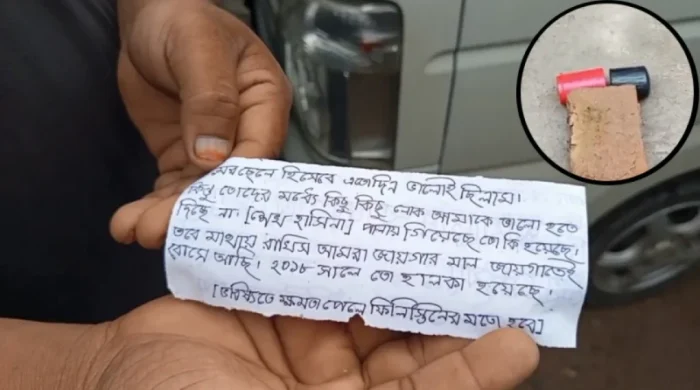 ছেলে হিসেবে এতদিন ভালোই ছিলাম।
কিন্তু তোদের মধ্যে কিছু কিছু লোক আমাকে ভালো হতে
দিছে না। [শেখ হাসিনা] পালায় গিয়েছে তো কি হয়েছে।
তবে মাথায় রাখিস আমরা জায়গার মাল জায়গাতেই
বোসে আছি। ২০১৮ সালে তো হালকা হয়েছে।
[ভবিষ্যতে ক্ষমতা পেলে ফিলিস্তিনের মতো হবে]